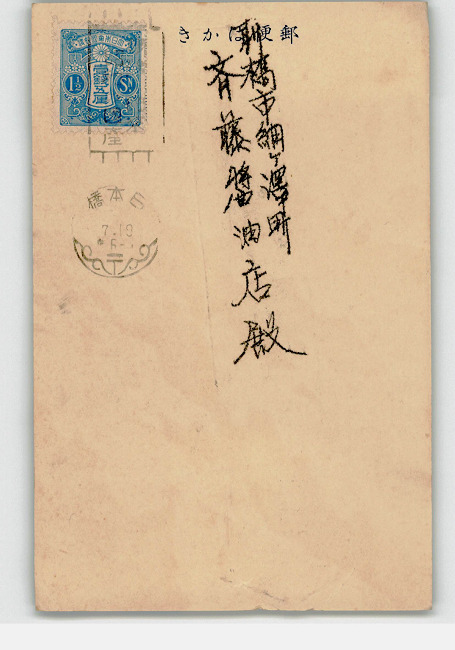 郵便はかき
橋市細ヶ澤町
斉藤醤油店殿
壹錢五厘
1½ Sn
日本橋
7.19